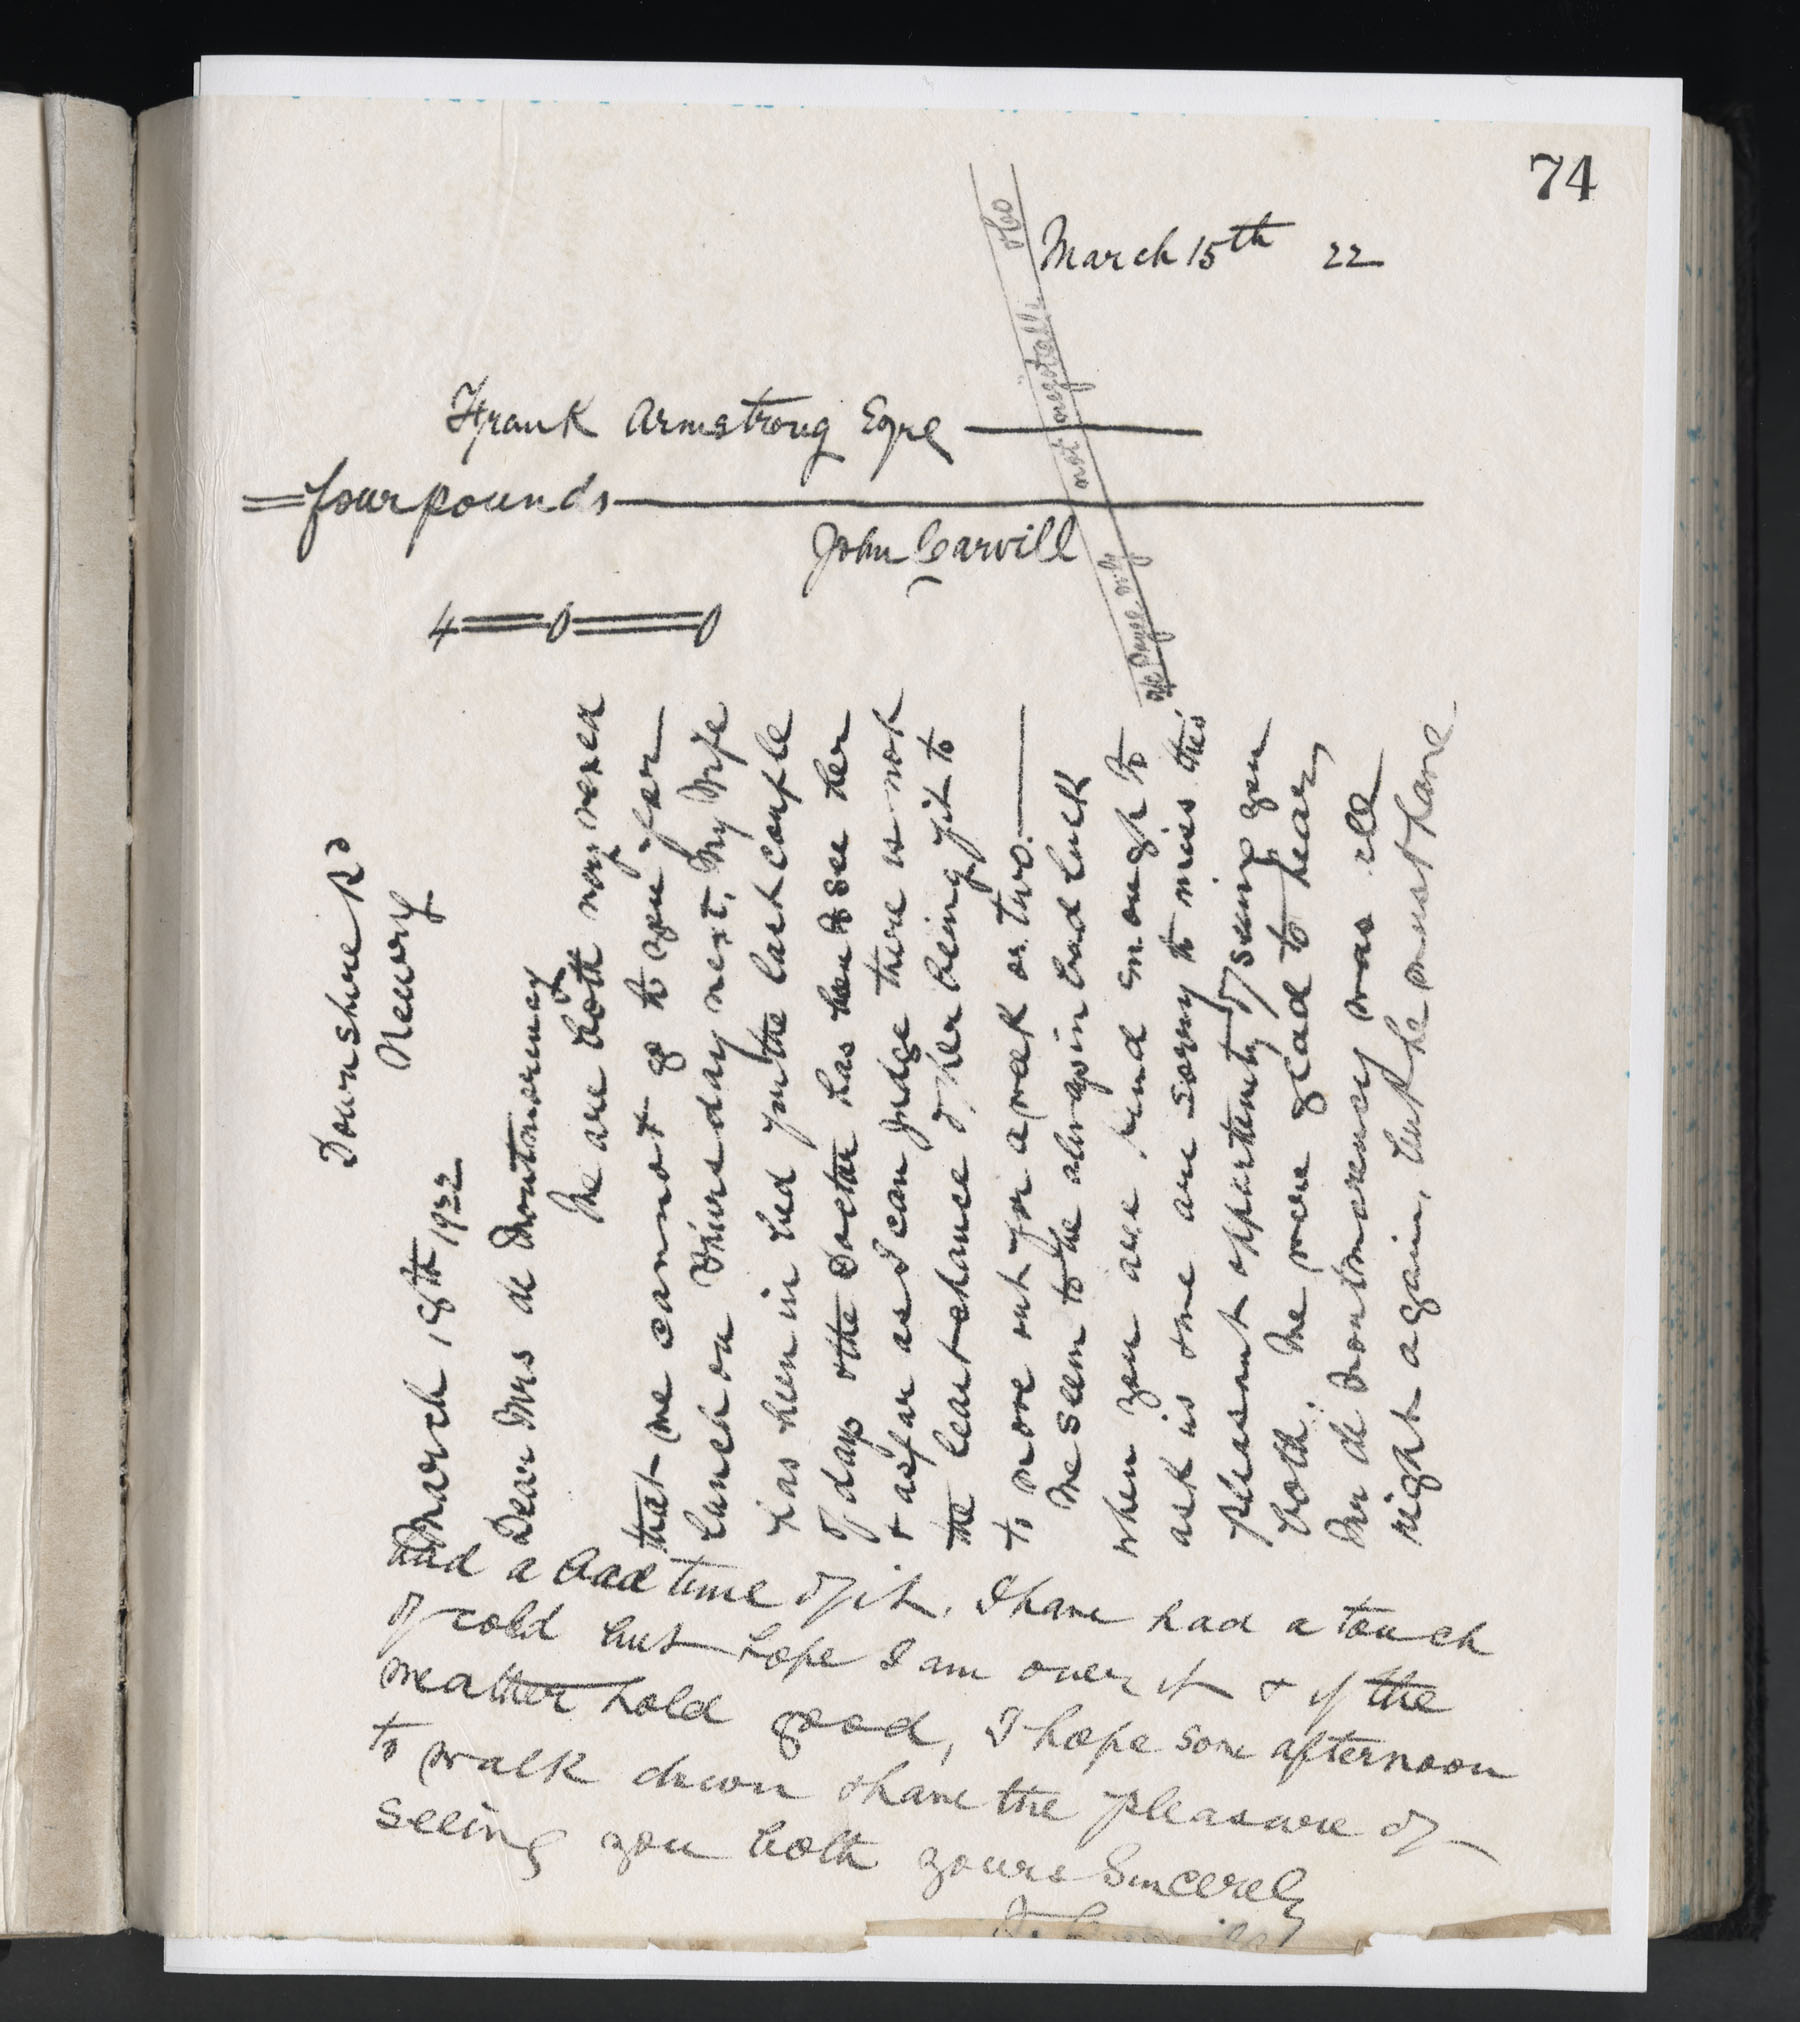 74
March 15th 22
Frank Armstrong Esqre
four pounds
John Carvill
4 = 0 = 0
& Co
"not negotiable
a/c Payee only
Downshire Rd
Newry
March 18th 1922
Dear Mrs de Montmorency
We are both very vexed
that we cannot go to you for
lunch on Thursday next. My Wife
has been in bed for the last couple
of days & the Doctor has been to see her
& as far as I can judge there is not
the least chance of her being fit to
to move out for a week or two.
We seem to be always in bad luck
when you are kind enough to
ask us & we are sorry to miss this
pleasant opportunity of seeing you
both. We were glad to hear,
Mr de Montmorency was all
right again, but he must have
had a bad time of it. I have had a touch
of cold but hope I am over it & if the
weather hold good, I hope some afternoon
to walk down & have the pleasure of
seeing you both yours Sincerely